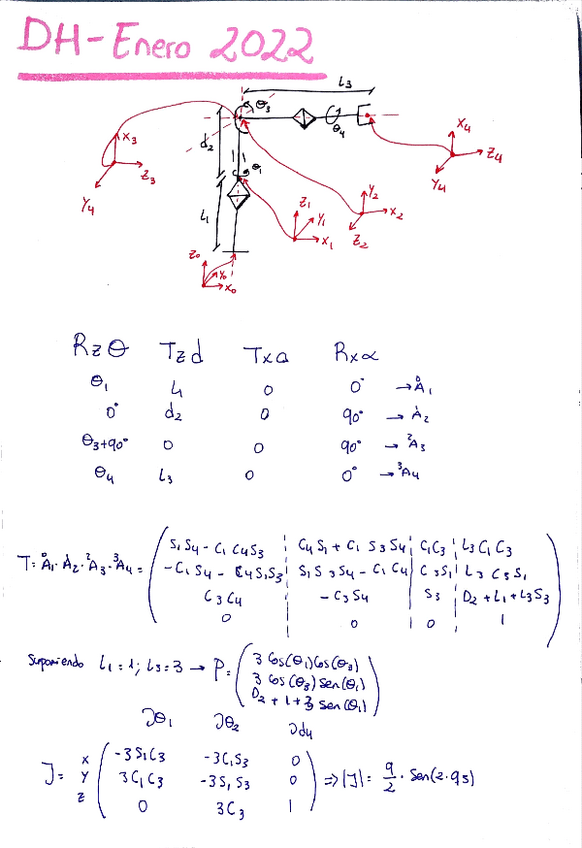 DH-Enero 2022
L3
θ3
θ4
d2
θ1
L1
X3
Z3
Y4
X4
Z4
Y4
Y2
X2
Z2
Z1
Y1
X1
Z0
Y0
X0
Rzθ Tzd Txa Rxα
θ1 L1 0 0° → ⁰A1
0° d2 0 90° → ¹A2
θ3+90° 0 0 90° → ²A3
θ4 L3 0 0° → ³A4
T = ⁰A1 · ¹A2 · ²A3 · ³A4 =
S1S4 - C1C4S3 C4S1 + C1S3S4 C1C3 L3C1C3
-C1S4 - C4S1S3 S1S3S4 - C1C4 C3S1 L3C3S1
C3C4 -C3S4 S3 D2+L1+L3S3
0 0 0 1
Suponiendo L1 = 1; L3 = 3 → P =
3 Cos(θ1)Cos(θ3)
3 Cos(θ3) Sen(θ1)
D2 + 1 + 3 sen(θ1)
∂θ1 ∂θ2 ∂d4
J =
X -3S1C3 -3C1S3 0
Y 3C1C3 -3S1S3 0
Z 0 3C3 1
⇒ |J| = 9/2 · Sen(2·q3)